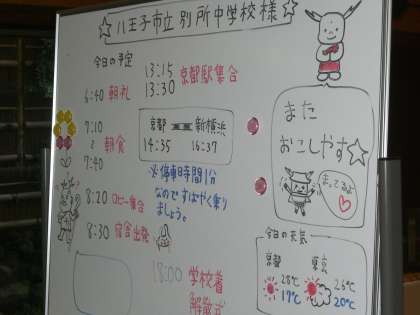 ☆八王子市立 別所中学校様☆
今日の予定
6:40 朝礼
7:10
〜 朝食
7:40
8:20 ロビー集合
8:30 宿舎出発
13:15 京都駅集合
13:30
京都 新横浜
14:35 16:37
※停車時間1分
なのですばやく乗り
ましょう。
18:00 学校着
解散式
また
おこしやす☆
まってるよ
今日の天気
京都 東京
28℃ 26℃
17℃ 20℃